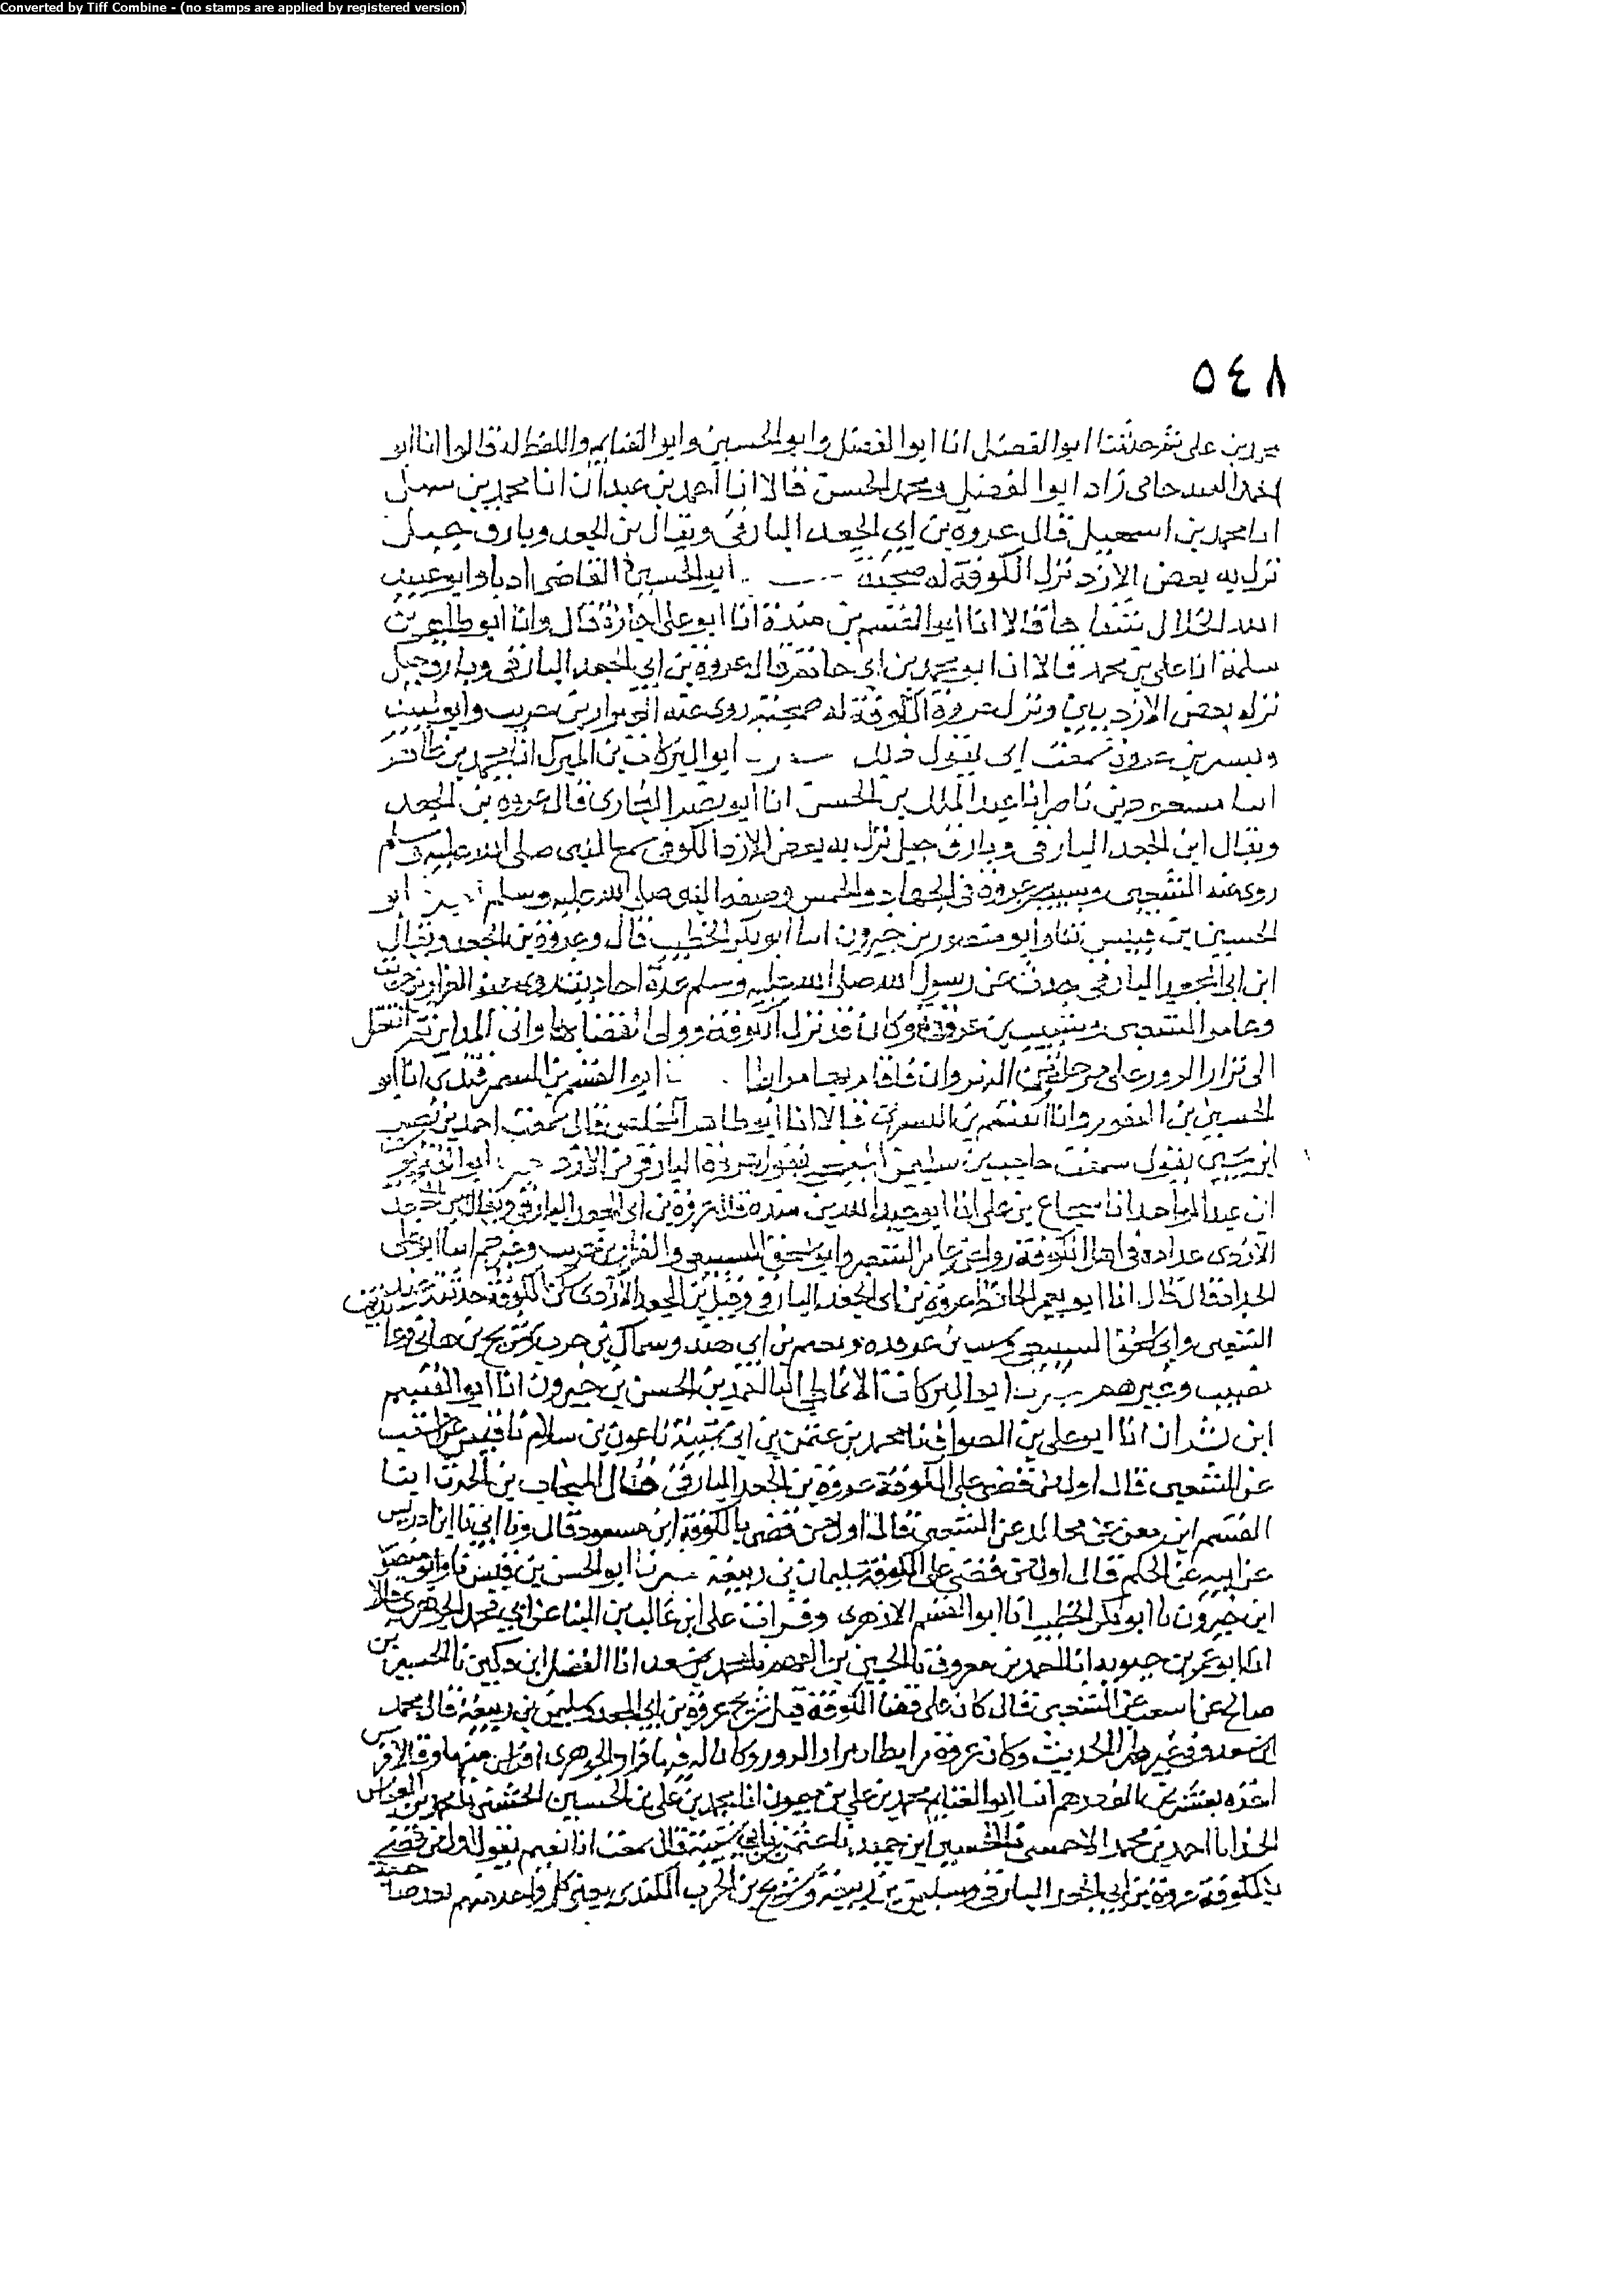 Converted by Tiff Combine - (no stamps are applied by registered version)
٥٤٨
بن على ثم حدثنا ابو الفضل انا ابو الفضل وابو الحسين وابو الغنايم واللفظ له قالوا انا ابو
زاد ابو الفضل ومحمد بن الحسن قالا انا احمد بن عبدان انا محمد بن سهل
انا محمد بن اسمعيل قال عروه بن ابي الجعد البارقي ويقال بن الجعد وبارق جبل
نزل به بعض الازد نزل الكوفة له صحبة ابو الحسين القاضي اذنا وابو عبد
الله الخلال شفاها قالا انا ابو القسم بن منده انا ابو على اجازة قال وانا ابو طاهر بن
سلمة انا على بن محمد قالا انا ابو محمد بن ابي حاتم قال عروة بن ابي الجعد البارقي وبارق جبل
نزله بعض الازد ونزل عروة الكوفة له صحبة روى عنه العيزار بن حريث وابو لبيد
سمعت ابي يقول ذلك ابو البركات بن المبرك انا محمد بن طاهر
انبا مسعود بن ناصر انا عبد الملك بن الحسن انا ابو نصر البخاري قال عروه بن الجعد
ويقال ابن ابي الجعد البارقي وبارق جبل نزل به بعض الازد الكوفي سمع النبي صلى الله عليه وسلم
روى عنه الشعبي وشبيب بن غرقدة في الجهاد والخمس وصفة النبي صلى الله عليه وسلم ابو
الحسن بن قبيس نا وابو منصور بن خيرون انبا ابو بكر الخطيب قال وعروة بن الجعد ويقال
ابن ابي الجعد البارقي حدث عن رسول الله صلى الله عليه وسلم عدة احاديث روى عنه العيزار بن حريث
وعامر الشعبي وشبيب بن غرقدة وكان قد نزل الكوفة وولي القضا بها واتى المداين ثم انتقل
الى براز الروز على مرحلة من النهروان فاقام بها مرابطا ابو القسم بن السمرقندي انا ابو
الحسين بن النقور وانا ابو القسم بن البسري قالا انا ابو طاهر المخلص قال سمعت احمد بن نصر
يقول سمعت حاجب بن سليمن يقول عروة البارقي من الازد ابو الفتح
بن عبد الواحد انا شجاع بن على انا ابو عبد الله بن منده قال عروة بن ابي الجعد البارقي ويقال بن الجعد
الازدي عداده في اهل الكوفة روى عنه عامر الشعبي وابو اسحق السبيعي والعيزار بن حريث وغيرهم انبا ابو على
الحداد قال قال انا ابو نعيم الحافظ عروة بن ابي الجعد البارقي وقيل بن الجعد الازدي سكن الكوفة حديثه عند
الشعبي وابي اسحق السبيعي وشبيب بن غرقده ونعيم بن ابي هند وسماك بن حرب وشريح بن هاني
وغيرهم ابو البركات الانماطي انبا احمد بن الحسن بن خيرون انا ابو القسم
ابن بشران انا ابو على بن الصواف نا محمد بن عثمن بن ابي شيبة نا عون بن سلام نا قيس عن اشعث
عن الشعبي قال اول من قضى على الكوفة عروة بن الجعد البارقي قال المنجاب بن الحرث انبا
القسم ابن معن عن مجالد عن الشعبي قال اول من قضى بالكوفة ابن مسعود قال ونا ابي نا ابن ادريس
عن ابيه عن الحكم قال اول من قضى على الكوفة سليمان بن ربيعة ابو الحسن بن قبيس نا وابو منصور
ابن خيرون نا ابو بكر الخطيب انا ابو القسم الازهري وقرات على ابن غالب بن البنا عن ابي محمد الجوهري قالا
انا ابو عمر بن حيويه انا احمد بن معروف نا الحسين بن الفهم نا محمد بن سعد انا الفضل ابن دكين نا الحسن بن
صالح عن اشعث عن الشعبي قال كان على قضا الكوفة قبل شريح عروة بن ابي الجعد وسليمن بن ربيعة قال محمد
بن سعد وفي غير هذا الحديث وكان عروة مرابطا ببراز الروز وكان له فيها فرس زاد الجوهري
اخذه بعشرين الف درهم انبا ابو الغنايم محمد بن علي بن ميمون انا محمد بن علي بن الحسين الحسني نا محمد بن العباس
الحذا نا احمد بن محمد الاحمسي نا الحسين ابن حميد نا عثمن بن ابي شيبة قال سمعت ابا نعيم يقول اول من قضى
بالكوفة عروة بن ابي الجعد البارقي وسليمن بن ربيعة وشريح بن الحرث الكندي يعني كل واحد منهم بعد صاحبه